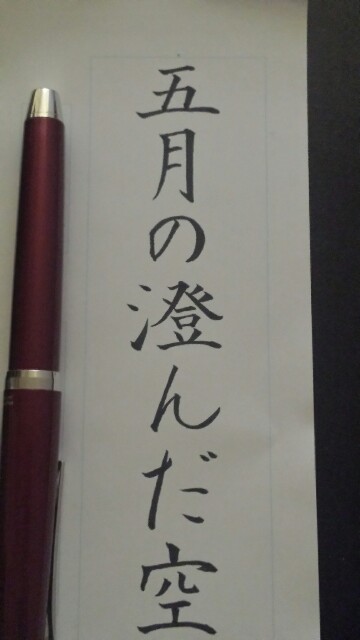 五月の澄んだ空